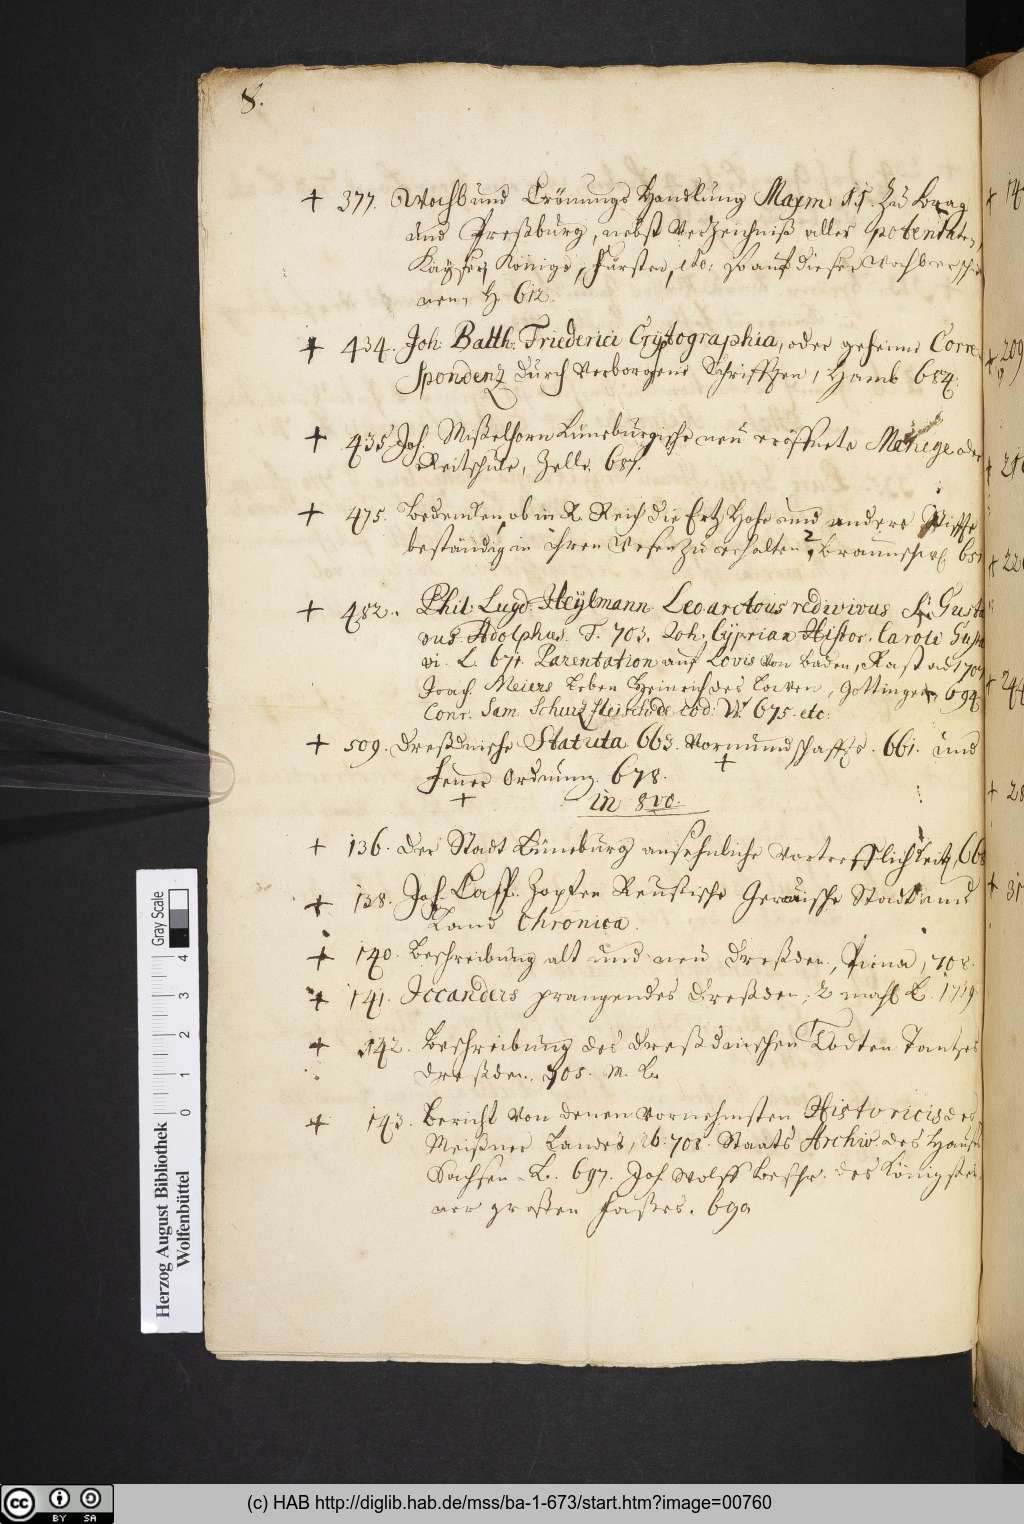 8.
+ 377. Wahl und Crönungs Handlung Maxim. II. zu Prag
und Preßburg, nebst Verzeichniß aller potentaten,
Kayser, Könige, Fürsten, etc: so auf dieser Wahl erschie
nen, H 612.
+ 434. Joh. Balth. Friderici Cryptographia, oder geheime Corre
spondenz durch verborgene Schrifften, Hamb 684.
+ 435 Joh. Mißelhorn Lüneburgische neu eröffnete Manege oder
Reitschule, Zelle
+ 475. Bedencken ob in R. Reich die Ertz Hohe und andere Stiffte
beständig in ihren Wesen zu erhalten, Braunschw.
+ 482. Phil. Lugd. Heylmann Leo arctous redivivus Gusta
vus Adolphus. 703. Joh. Cyprian Histor. Caroli Gusta
vi. L. Parentation auf Lovis von Baden, Rastad
Joach. Meiers Leben Heinrich des Löwen, Gottingen 694
Conr. Sam. Schurzfleisch W. 675. etc.
+ 509. Dreßdnische Statuta 663. Vormundschaffts. 661. und
+
Feuer Ordnung. 678.
+
in 8vo.
+ 136. Der Stadt Lüneburg ansehnliche Vortrefflichkeit, 66
+ 138. Joh. Casp. Zopfen Reußische Geraische Stadt und
Land Chronica.
+ 140. Beschreibung alt und neu Dreßden, Pirna, 708.
+ 141. Iccanders prangendes Dreßden, 2 mahl L. 1719
+ 142. Beschreibung des Dreßdnischen Todten Tantzes
Dreßden. 705. m. L.
+ 143. Bericht von denen vornehmsten Historicis des
Meißner Landes, ib. 708. Staats Archiv. des Hauses
Sachsen L. 697. Joh Wolff Beschr. des Königstei
ner großen Faßes. 690
+ 14
+ 209
+ 21
+ 22
+ 244
+ 28
+ 31
Gray Scale
4 3 2 1 0
Herzog August Bibliothek
Wolfenbüttel
cc BY SA
(c) HAB http://diglib.hab.de/mss/ba-1-673/start.htm?image=00760